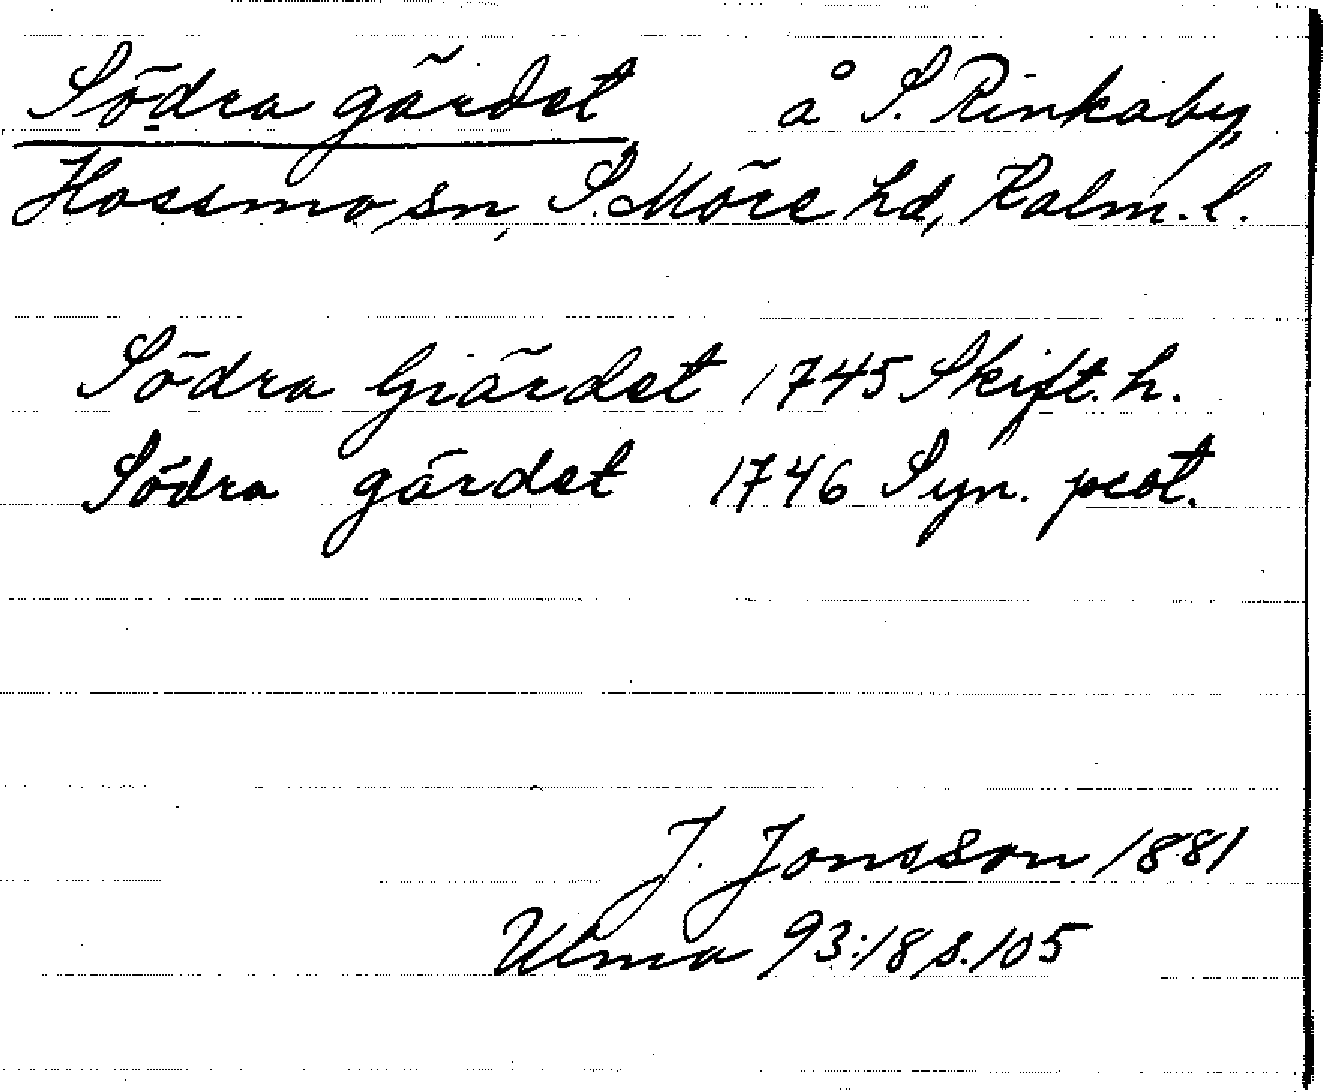 Södra gärdet å S. Rinkaby,
Hossmo sn, S. Möre hd, Kalm. l.
Södra Giärdet 1745 Skift. h.
Södra gärdet 1746 Syn. prot.
J. Jonsson 1881
Ulma 93:18 s. 105